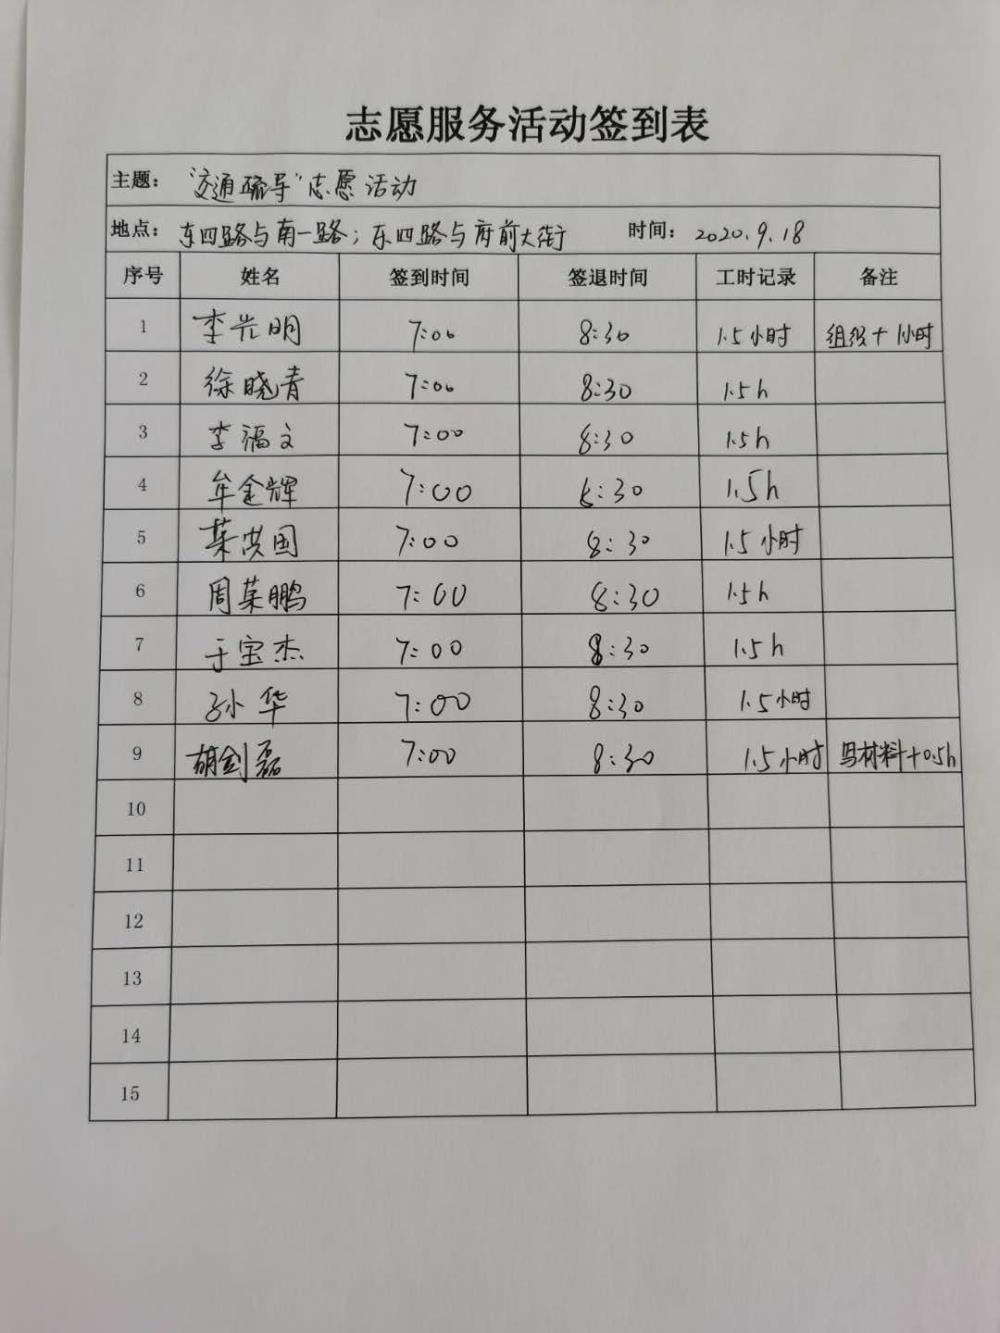 志愿服务活动签到表
主题： "交通疏导"志愿活动
地点： 东四路与南一路；东四路与府前大街 时间： 2020.9.18
序号 姓名 签到时间 签退时间 工时记录 备注
1 李光明 7:00 8:30 1.5小时 组织+1小时
2 徐晓青 7:00 8:30 1.5h
3 李福文 7:00 8:30 1.5h
4 牟金辉 7:00 8:30 1.5h
5 洪国 7:00 8:30 1.5小时
6 周荣鹏 7:00 8:30 1.5h
7 于宝杰 7:00 8:30 1.5h
8 孙华 7:00 8:30 1.5小时
9 胡剑磊 7:00 8:30 1.5小时 写材料+0.5h
10
11
12
13
14
15